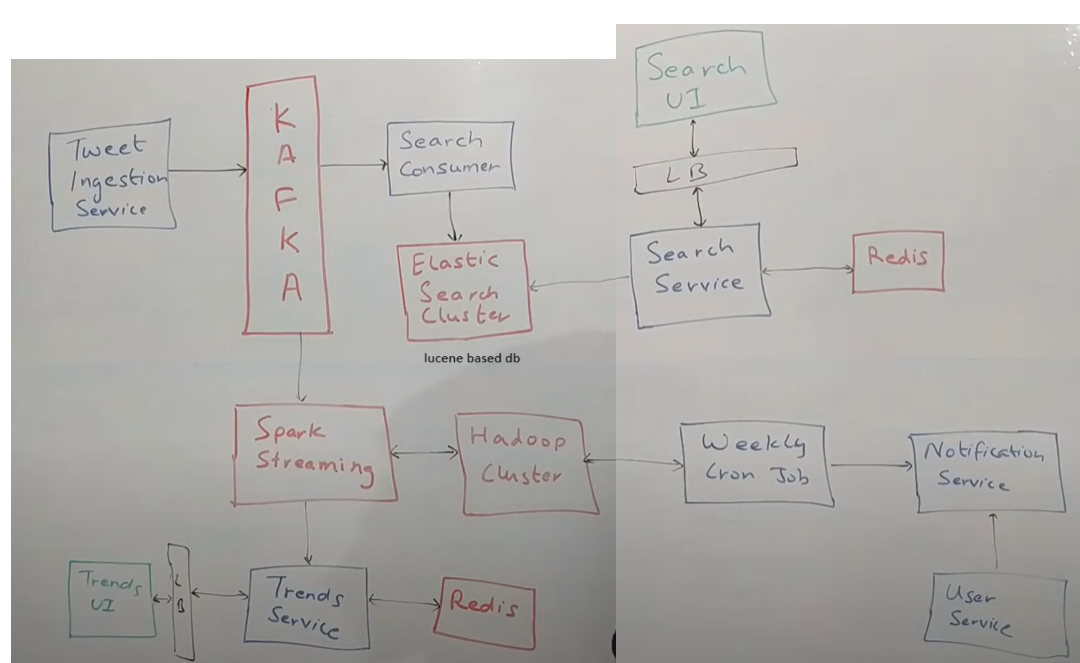 Tweet
Ingestion
Service
K
A
F
K
A
Search
Consumer
Elastic
Search
Cluster
lucene based db
Search
UI
LB
Search
Service
Redis
Spark
Streaming
Hadoop
Cluster
Weekly
Cron Job
Notification
Service
User
Service
Trends
UI
L
B
Trends
Service
Redis